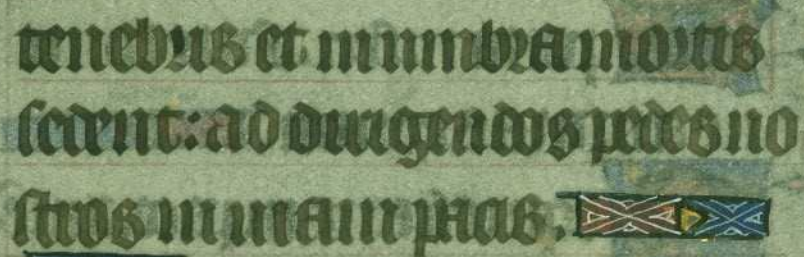 tenebris et in umbra mortis
sedent: ad dirigendos pedes no
stros in uiam pacis.